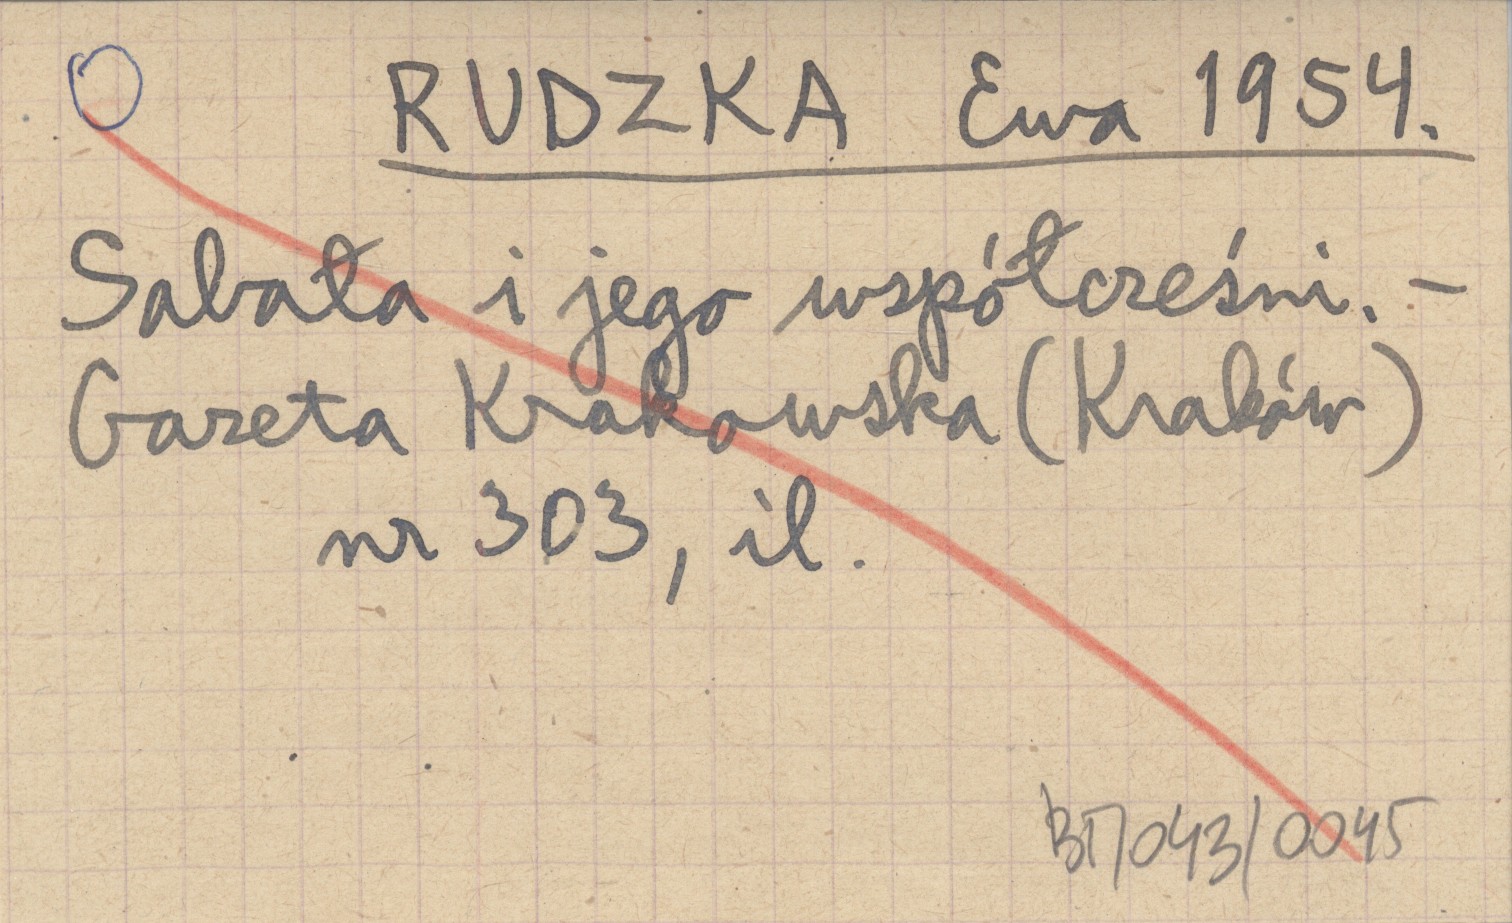 RUDZKA Ewa 1954.
Sabała i jego współcześni. -
Gazeta Krakowska (Kraków)
nr 303, il.
BT/043/0045